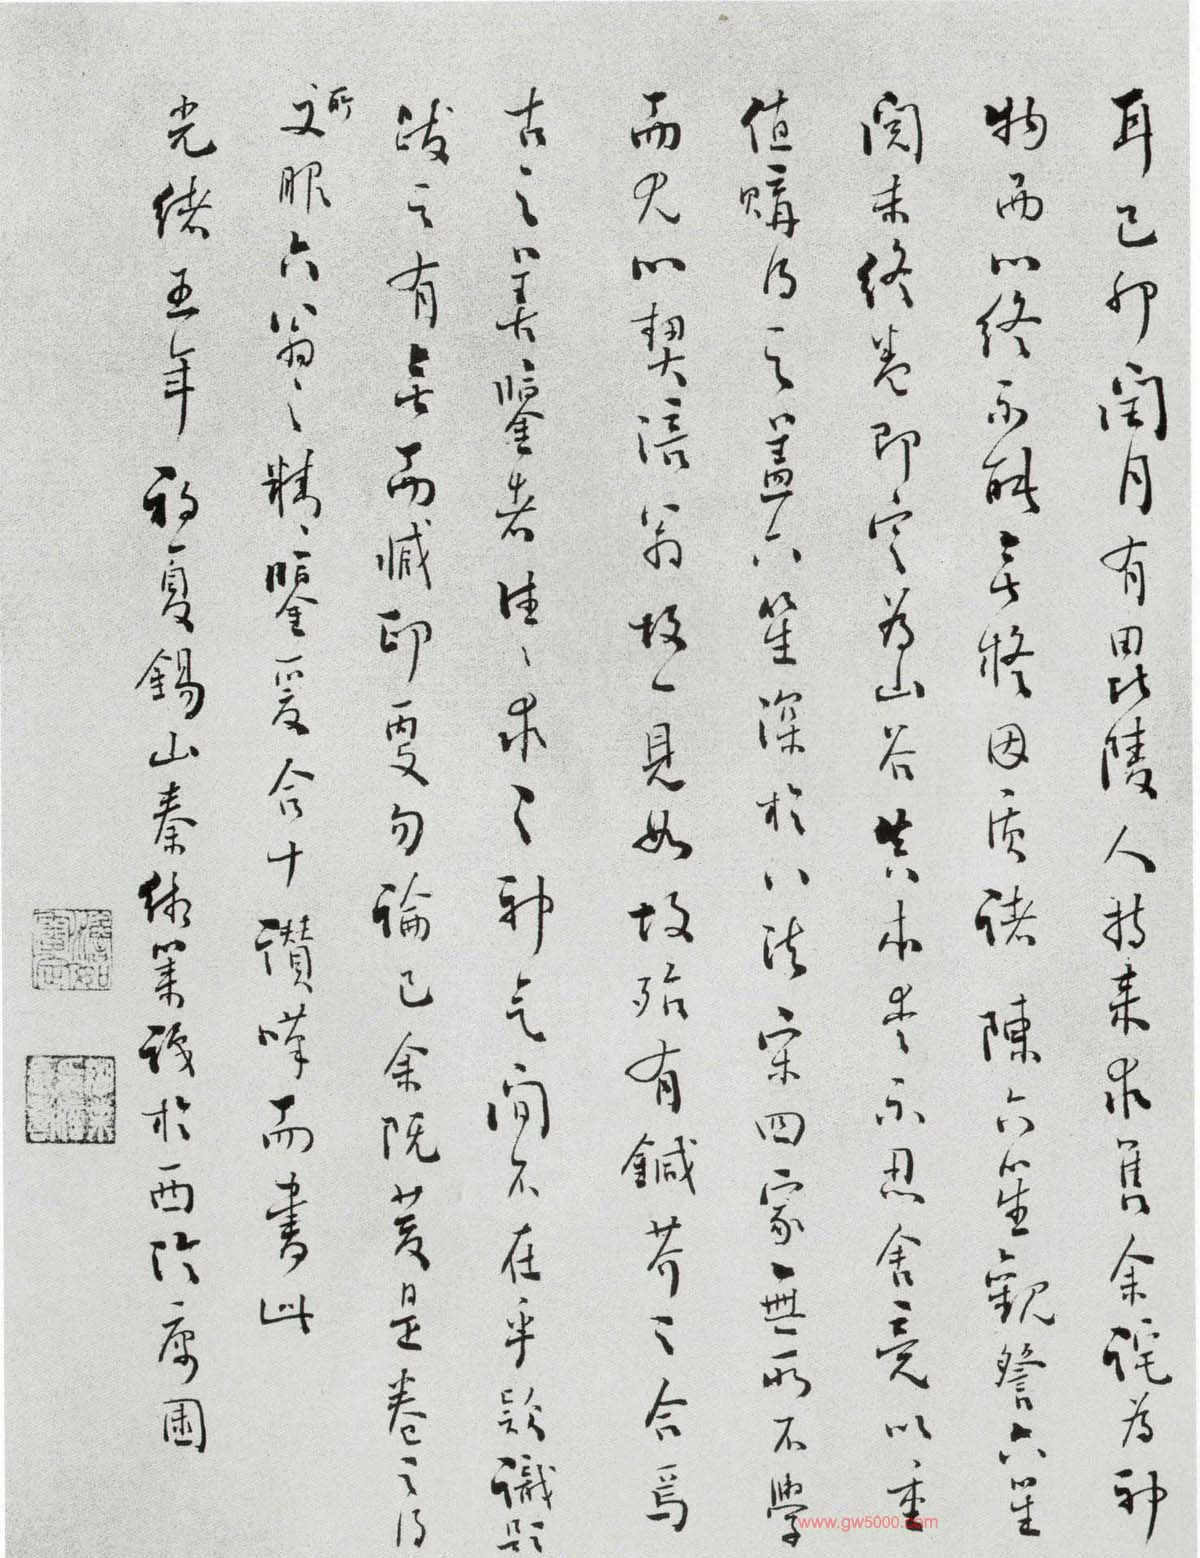 耳己卯閏月有毘陵人持来求售余詫為神
物而以終不能無疑因质諸陳六笙觀詧六笙
閱未終卷即定為山谷真本愛不忍舍竟以重
值購得之蓋六笙深於八法宋四家無所不學
而尤以契涪翁故一見如故殆有鍼芥之合焉
古之善鑒者往〻求之神气間不在乎款識題
跋之有无而臧印更勿論已余既慶是卷之得
所又服六翁之精〻鑒爰合十讚嘆而書此
光緒五年初夏錫山秦緗業識於西泠寓園
www.gw5000.com